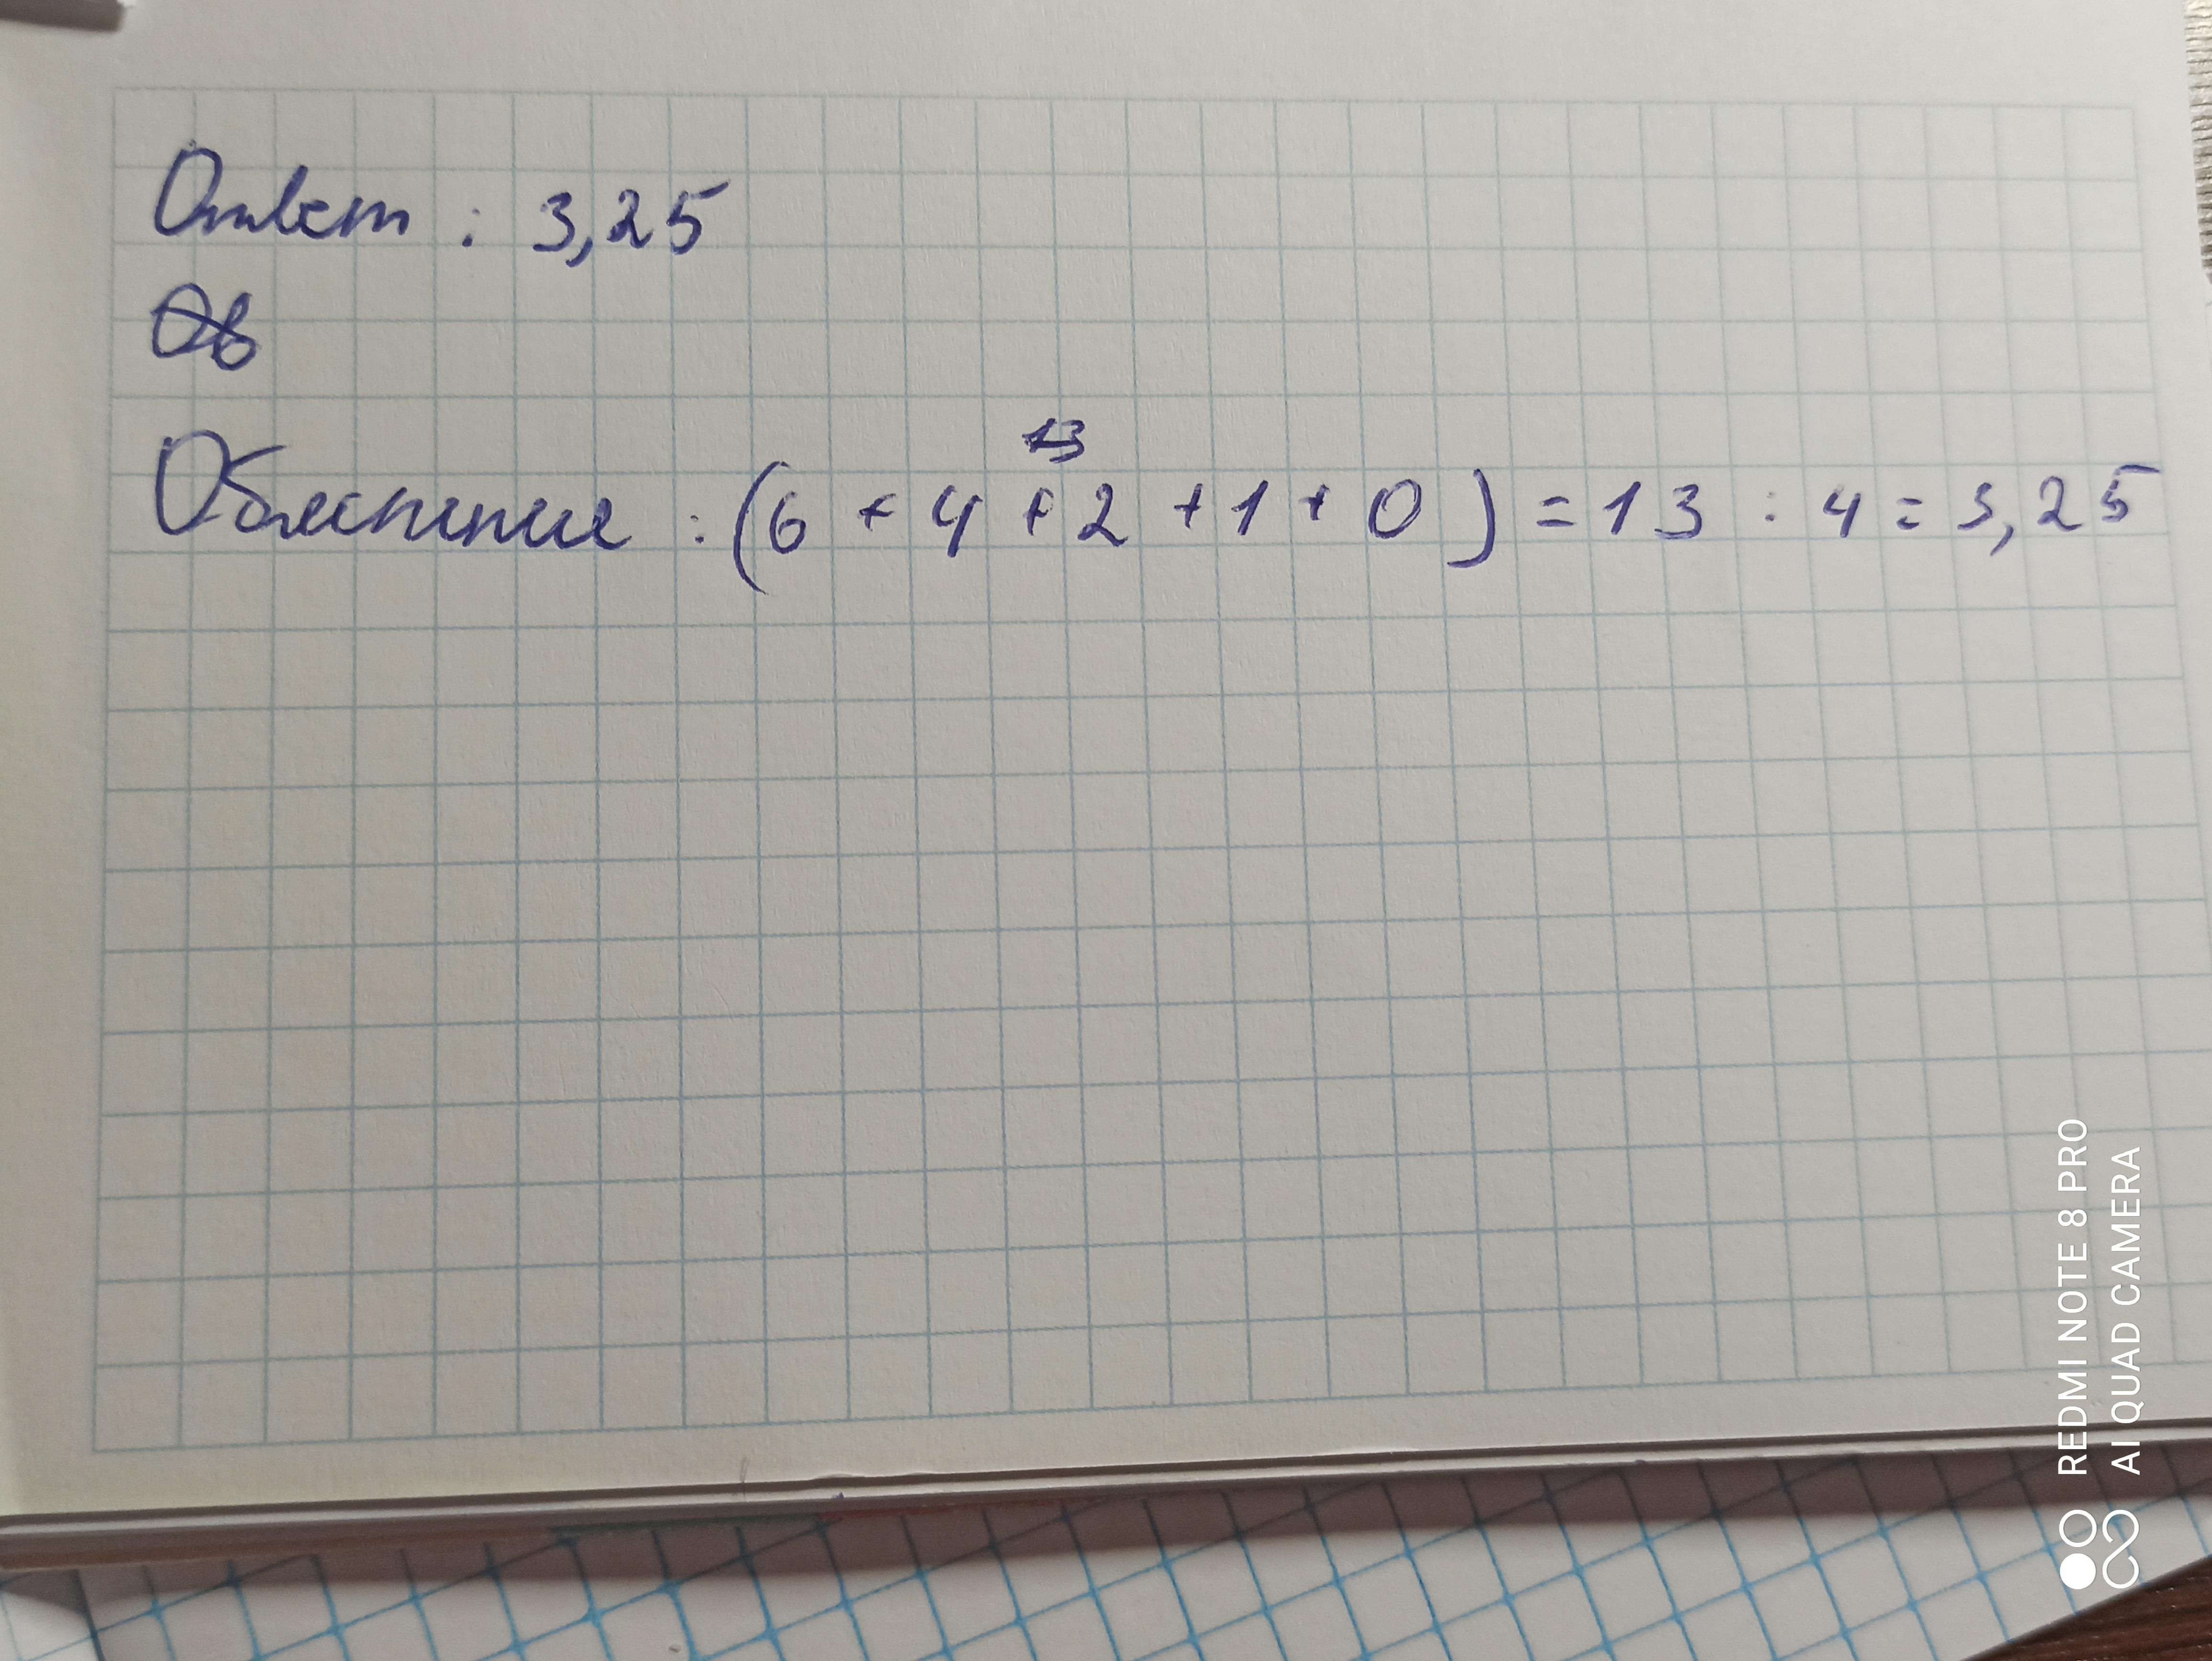 Ответ : 3,25
Об
13
Обяснение : (6 + 4 + 2 + 1 + 0) = 13 : 4 = 3,25
REDMI NOTE 8 PRO
AI QUAD CAMERA